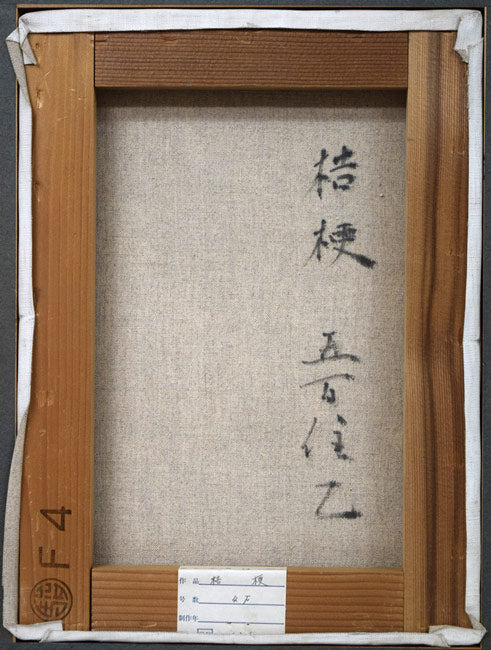 桔梗 五百住乙
F4
作品 桔 梗
号数 4F
制作年